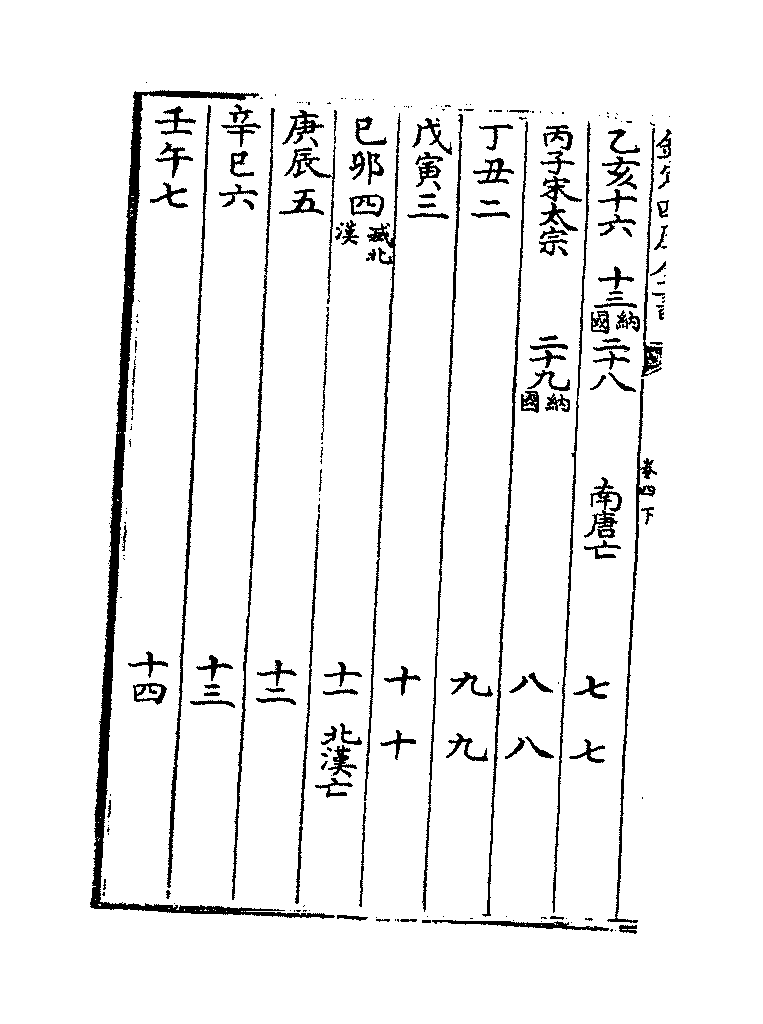 欽定四庫全書 卷四下
乙亥十六 十三納國 二十八 南唐亡 七 七
丙子宋太宗 二十九納國 八 八
丁丑二 九 九
戊寅三 十 十
己卯四滅北漢 十一 北漢亡
庚辰五 十二
辛巳六 十三
壬午七 十四